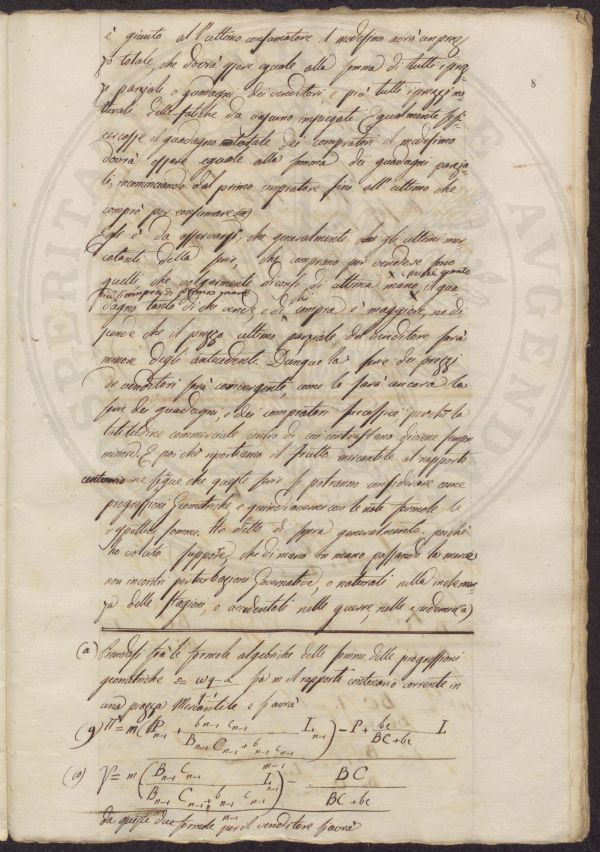 8
è giunto all'ultimo consumatore il medesimo avrà un prez-
zo totale, che dovrà essere eguale alla somma di tutti i prez-
zi parziali o guadagni dei venditori, e più tutti i prezzi na-
turali delle fatiche da ciascuno impiegate. Egualmente
il guadagno totale dei compratori il medesimo
dovrà essere eguale alla somma dei guadagni parzia-
li, incominciando dal primo compratore fino all'ultimo che
comprò per consumare (a)
Egli è da osservarsi, che generalmente gli ultimi mer
catanti della serie, che comprano per vendere sono
quelli, che volgarmente diconsi di ultima mano il gua
poichè quanto
più compra di prima mano
dagno tanto di chi vende e di chi compra è maggiore, ne di
scende che il prezzo ultimo parziale del venditore sarà
minore degli antecedenti. Dunque la serie dei prezzi
de venditori sarà convergente, come lo sarà ancora la
serie dei guadagni, dei compratori successivi perchè la
latitudine commerciale entro di cui contrastano diviene sempre
minore. E poichè riportiamo il frutto mercantile al rapporto
centenario ne segue che queste serie si potranno considerare come
progressioni Geometriche e quindi averne con le note formole le
rispettive somme. Ho detto di sopra generalmente, perchè
ho voluto supporre, che di mano in mano passando la merce
non incontri perturbazioni Governative, o naturali nella inclemen-
za delle stagioni, o accidentali nelle guerre nelle epidemie (a)
(a) Prendasi frà le formole algebriche delle somme delle progressioni
geometriche s = ωq - α sia m il rapporto centenario corrente in
una piazza Mercantile e s'avrà
(9) π = m (P n-1 + b n-1 c n-1 L n-1) - P + bc L
B n-1 C n-1 + b n-1 c n-1 BC + bc
m-1
(10) γ = m (B n-1 C n-1 L n-1) - BC
B n-1 C n-1 + b n-1 c n-1 BC + bc
m-1
da queste due formole per il venditore s'avrà